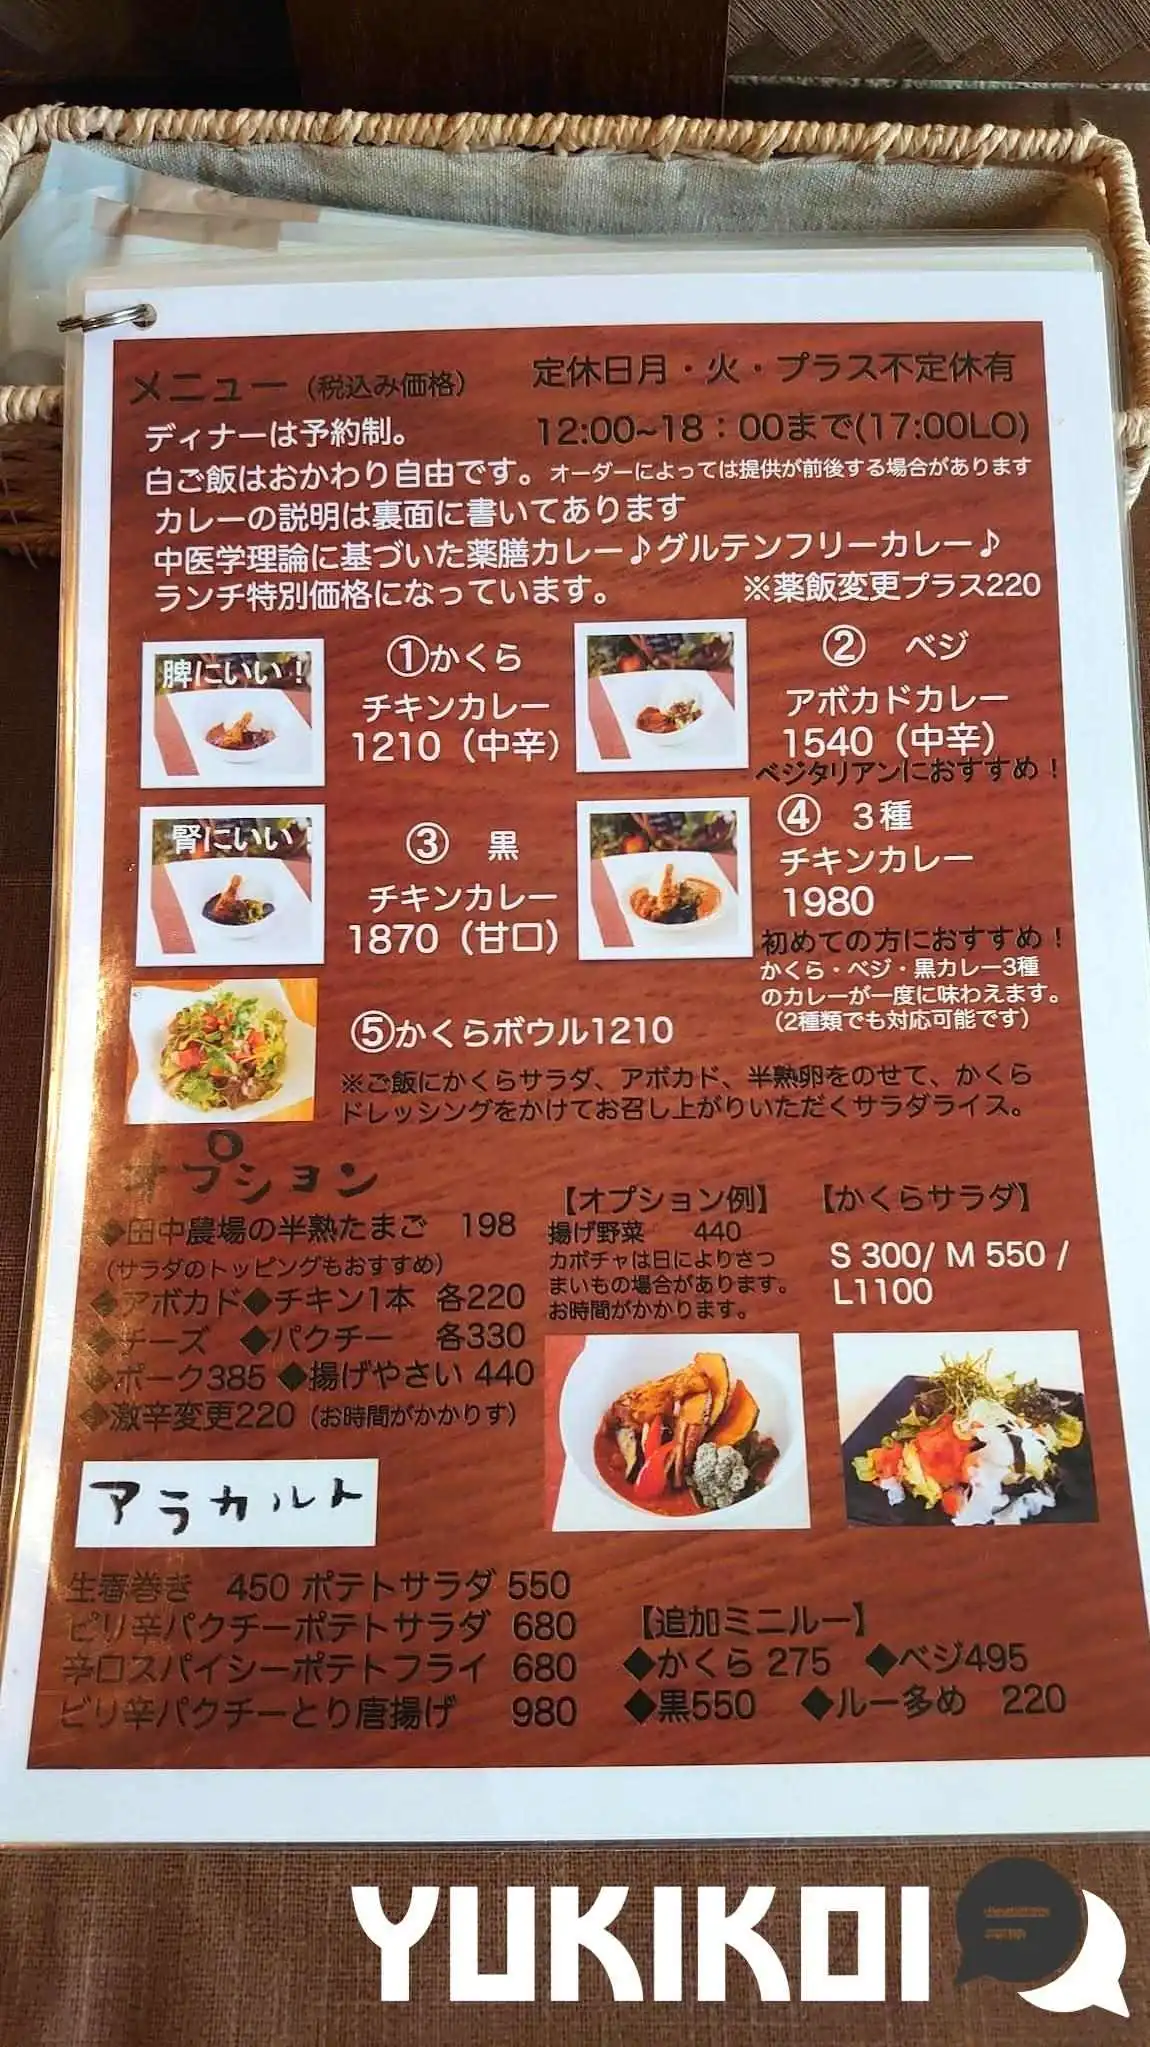 メニュー（税込み価格）　定休日月・火・プラス不定休有
ディナーは予約制。　12:00~18：00まで(17:00LO)
白ご飯はおかわり自由です。オーダーによっては提供が前後する場合があります
カレーの説明は裏面に書いてあります
中医学理論に基づいた薬膳カレー♪グルテンフリーカレー♪
ランチ特別価格になっています。　※薬飯変更プラス220
脾にいい！
①かくら
チキンカレー
1210（中辛）
②　ベジ
アボカドカレー
1540（中辛）
ベジタリアンにおすすめ！
腎にいい！
③　黒
チキンカレー
1870（甘口）
④　３種
チキンカレー
1980
初めての方におすすめ！
かくら・ベジ・黒カレー3種
のカレーが一度に味わえます。
（2種類でも対応可能です）
⑤かくらボウル1210
※ご飯にかくらサラダ、アボカド、半熟卵をのせて、かくら
ドレッシングをかけてお召し上がりいただくサラダライス。
オプション
◆田中農場の半熟たまご　198
（サラダのトッピングもおすすめ）
◆アボカド◆チキン1本　各220
◆チーズ　◆パクチー　各330
◆ポーク385 ◆揚げやさい 440
◆激辛変更220（お時間がかかりす）
【オプション例】
揚げ野菜　440
カボチャは日によりさつ
まいもの場合があります。
お時間がかかります。
【かくらサラダ】
S 300/ M 550 /
L1100
アラカルト
生春巻き　450 ポテトサラダ 550
ピリ辛パクチーポテトサラダ　680
辛口スパイシーポテトフライ　680
ピリ辛パクチーとり唐揚げ　980
【追加ミニルー】
◆かくら 275　◆ベジ495
◆黒550　◆ルー多め　220
YUKIKOI